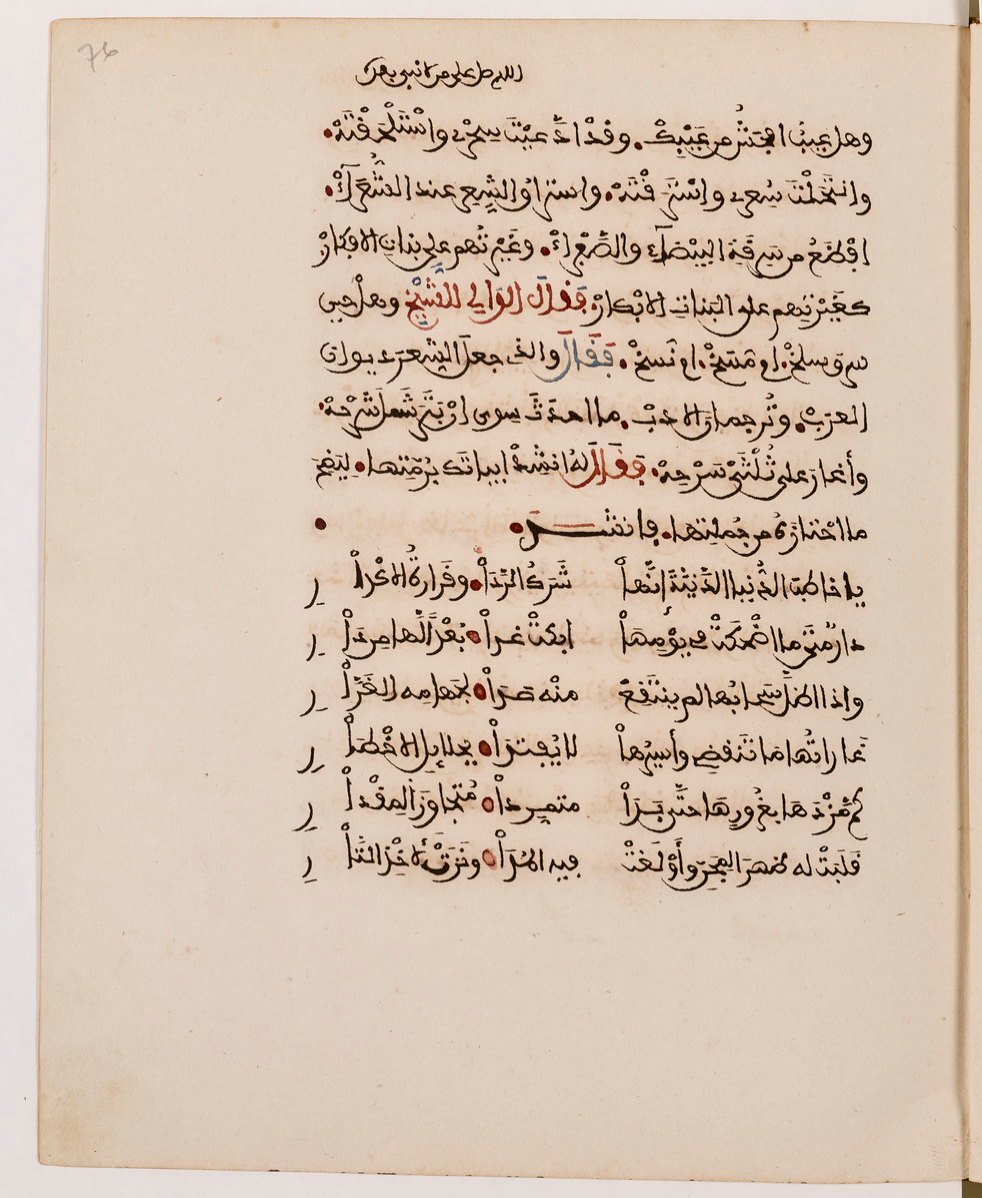 اللهم صل على من لا نبي بعده
وهل عيب افحش من عيبك. وقد ادعيت سحري واستلحقته.
وانتحلت شعري واسترقته. واستراق الشعر عند الشعراء.
افظع من سرقة البيضاء والصفراء. وغيرتهم على بنات الافكار
كغيرتهم على البنات الابكار فقال الوالي للشيخ وهل حين
سرق سلخ. ام مسخ. ام نسخ. فقال والذي جعل الشعر ديوان
العرب. وترجمان الادب. ما احدث سوى ان بتر شمل شرحه.
وأغار على ثلثي سرحه. فقال له انشد ابياتك برمتها. ليتضح
ما احتازه من جملتها. فانشد
يا خاطب الدنيا الدنية انها شرك الردا وقرارة الاكدا ر
دار متى ما اضحكت في يومها ابكت غدا بعدا لها من دا ر
واذا اظل سحابها لم ينتفع منه صدا لجهامه الغرا ر
غاراتها ما تنقضي وأسيرها لا يفتدا بجلايل الاخطا ر
كم مزدها بغرورها حتى بدا متمردا متجاوز المقدا ر
قلبت له ظهر المجن وأولغت فيه المدا ونزت لاخذ الثا ر